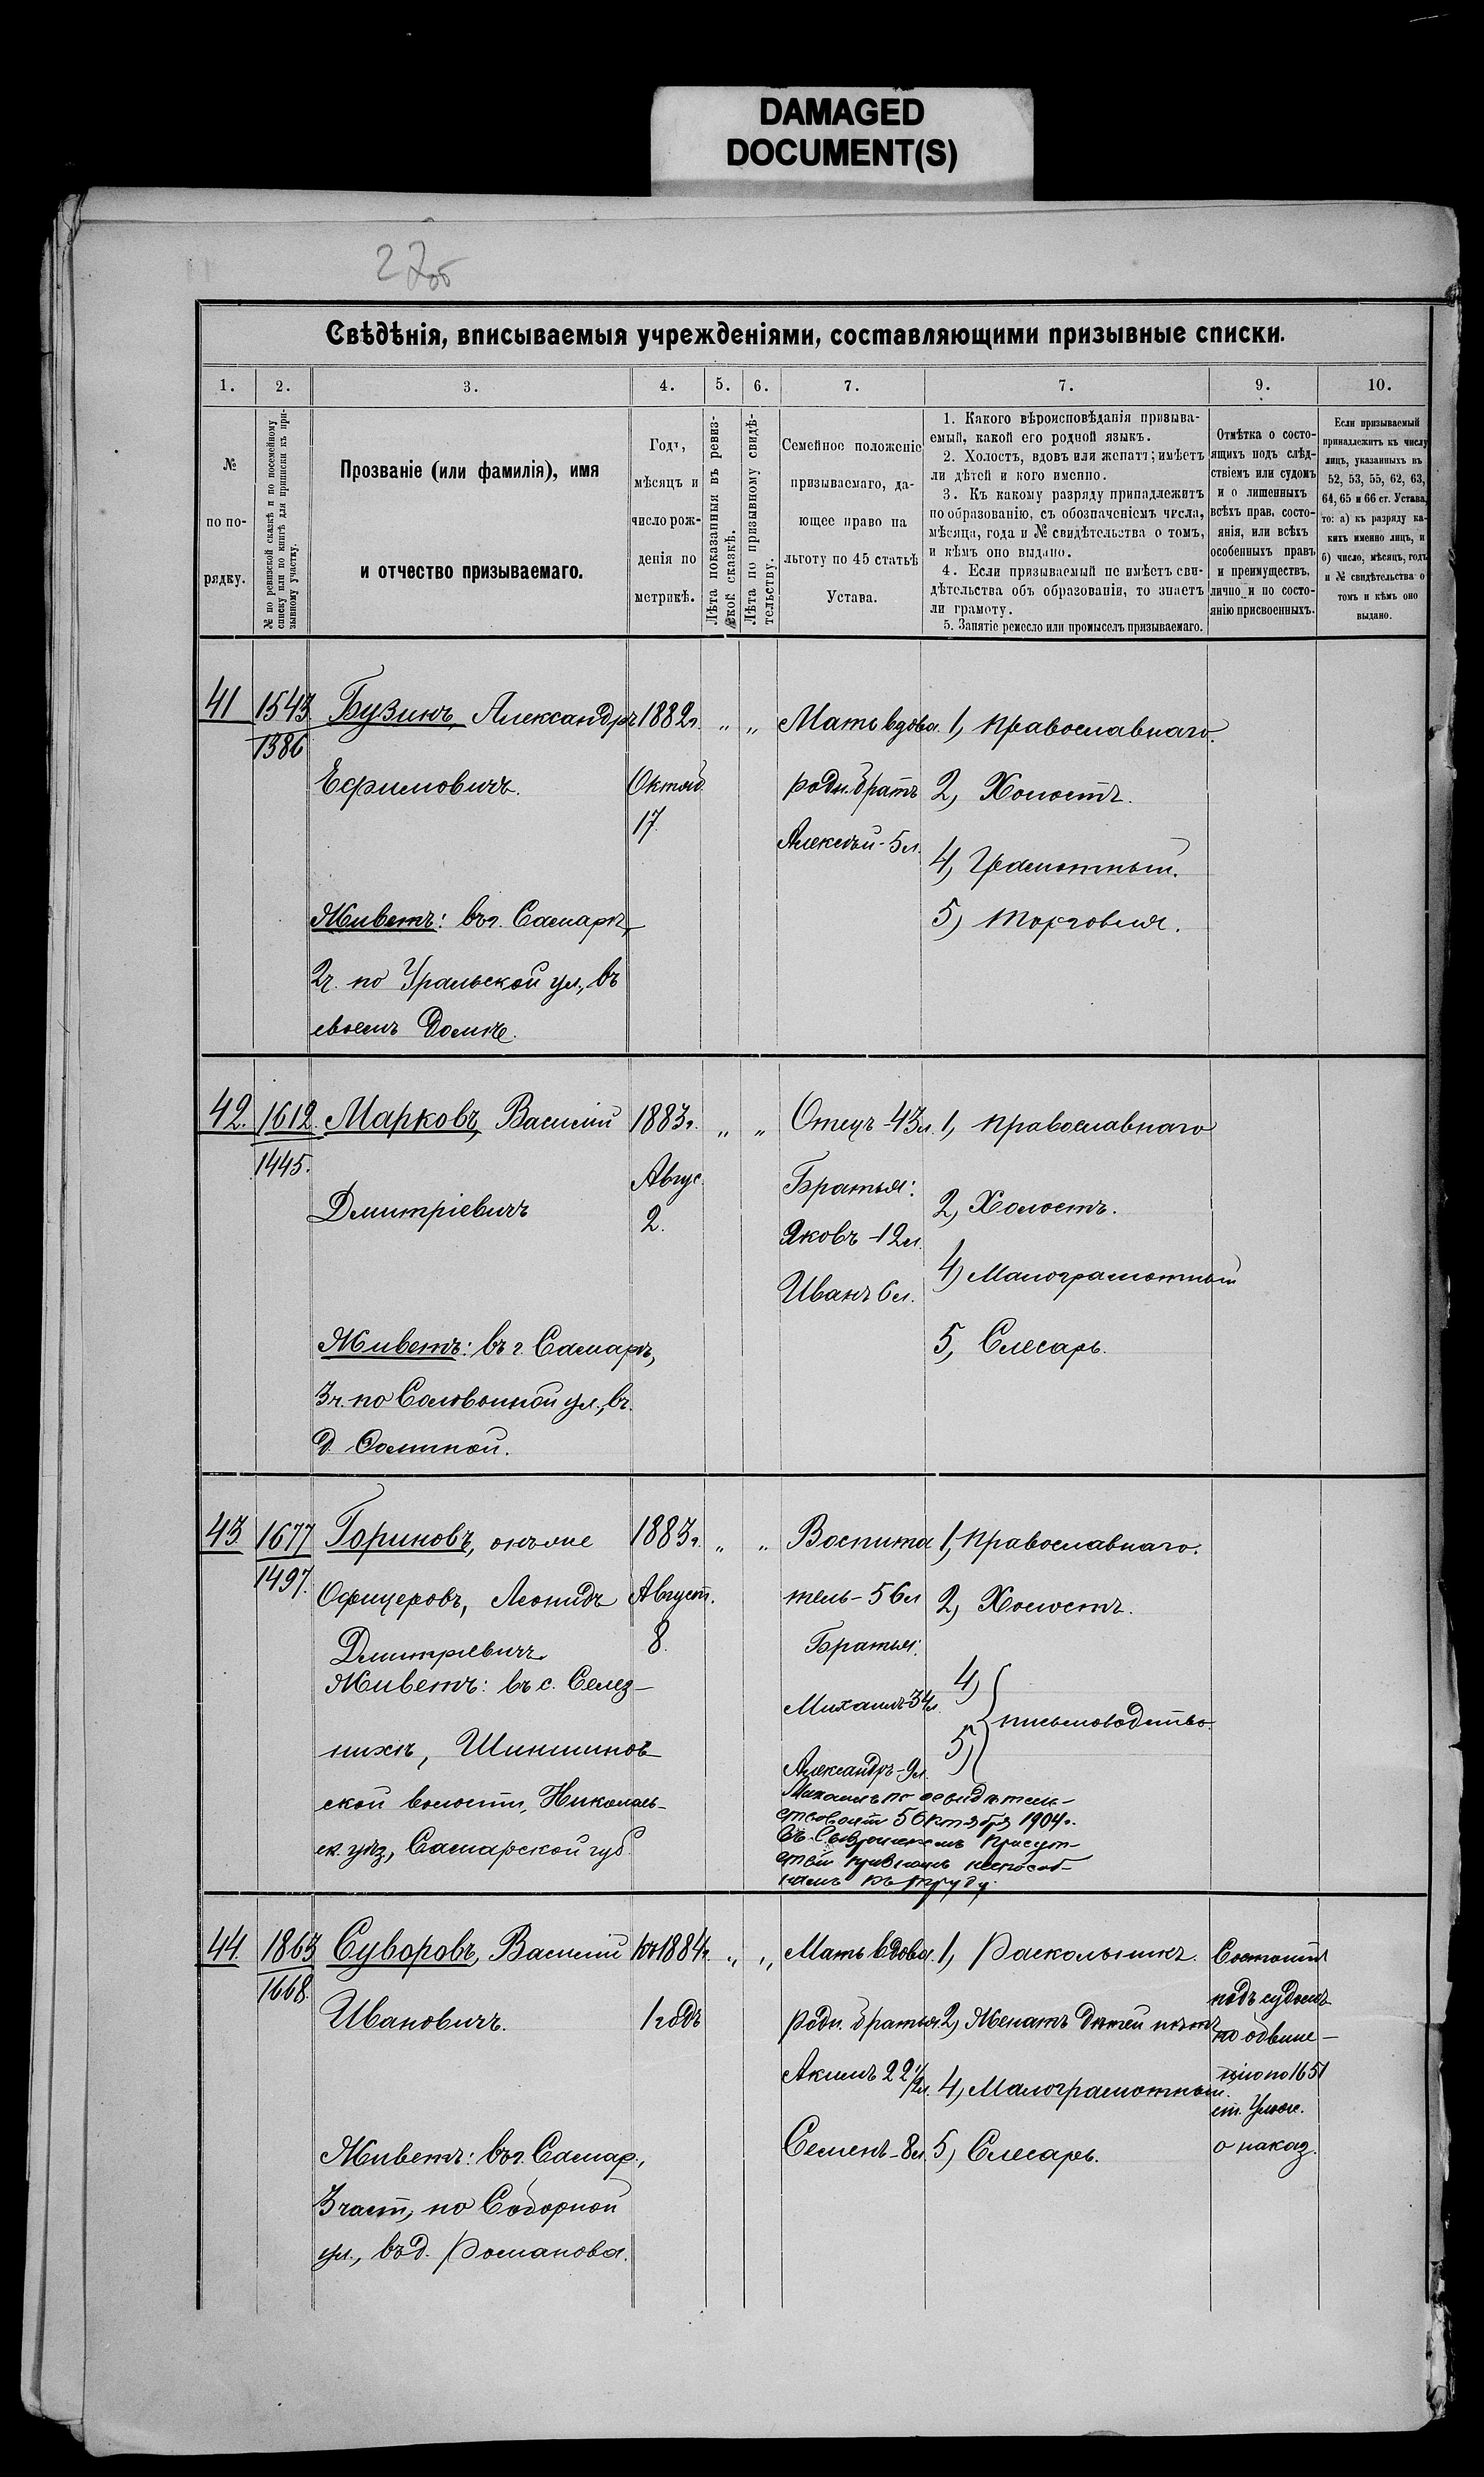 DAMAGED
DOCUMENT(S)
27об
Свѣдѣнія, вписываемыя учрежденіями, составляющими призывные списки.
1. 2. 3. 4. 5. 6. 7. 7. 9. 10.
№
по по-
рядку.
№ по ревизской сказкѣ и по посемейному
списку или по книгѣ для приписки къ при-
зывному участку.
Прозваніе (или фамилія), имя
и отчество призываемаго.
Годъ,
мѣсяцъ и
число рож-
денія по
метрикѣ.
Лѣта показанныя въ ревиз-
ской сказкѣ.
Лѣта по призывному свидѣ-
тельству.
Семейное положеніе
призываемаго, да-
ющее право на
льготу по 45 статьѣ
Устава.
1. Какого вѣроисповѣданія призыва-
емый, какой его родной языкъ.
2. Холостъ, вдовъ или женатъ; имѣетъ
ли дѣтей и кого именно.
3. Къ какому разряду принадлежитъ
по образованію, съ обозначеніемъ числа,
мѣсяца, года и № свидѣтельства о томъ,
и кѣмъ оно выдано.
4. Если призываемый не имѣетъ сви-
дѣтельства объ образованіи, то знаетъ
ли грамоту.
5. Занятіе ремесло или промыселъ призываемаго.
Отмѣтка о состо-
ящихъ подъ слѣд-
ствіемъ или судомъ
и о лишенныхъ
всѣхъ прав, состо-
янія, или всѣхъ
особенныхъ правъ
и преимуществъ,
лично и по состо-
янію присвоенныхъ.
Если призываемый
принадлежитъ къ числу
лицъ, указанныхъ въ
52, 53, 55, 62, 63,
64, 65 и 66 ст. Устава,
то: а) къ разряду ка-
кихъ именно лицъ, и
б) число, мѣсяцъ, годъ
и № свидѣтельства о
томъ и кѣмъ оно
выдано.
41 1543 Бузинъ, Александръ 1882г. „ „ Мать вдова. 1, Православнаго.
1386
Ефимовичъ. Октяб. родн. братъ 2, Холостъ.
17.
Алексѣй - 5л. 4, Грамотный.
Живетъ: въ г. Самарѣ, 5) Торговля.
2ч. по Уральской ул., въ
своемъ домѣ.
42. 1612. Марковъ, Василій 1883г. „ „ Отецъ - 43л. 1, Православнаго
1445.
Дмитріевичъ Авгус. Братья: 2, Холостъ.
2. Яковъ - 12л.
Иванъ 6л. 4) Малограмотный
Живетъ: въ г. Самарѣ, 5, Слесарь.
3ч. по Соловьиной ул., въ
д. Ѳоминой.
43. 1677 Гориновъ, онъ же 1883г. „ „ Воспита 1, Православнаго.
1497.
Офицеровъ, Леонидъ Август. тель - 56л 2, Холостъ.
Дмитріевичъ. 8. Братья:
Живетъ: въ с. Селез- Михаилъ-34л. 4)
нихѣ, Шиншинов- 5) письмоводство.
ской волости, Николаь- Александръ - 9л.
ск. уѣз, Самарской губ.
Михаилъ по освидѣтель-
ствованіи 5 Октября 1904г.
въ Сызранскомъ Присут-
ствіи признанъ неспособ-
нымъ къ труду.
44. 1863 Суворовъ, Василій къ 1884г. „ „ Мать вдова. 1, Раскольникъ. Состоитъ
1668. подъ судомъ
Ивановичъ. 1 годъ родн. братья: 2) Женатъ дѣтей нѣтъ по обвине-
нію по 1651
Акимъ 22 1/2л. 4, Малограмотный. ст. Улож.
Живетъ: въ г. Самар., Семенъ - 8л. 5) Слесарь. о наказ.
3 част, по Соборной
ул., въ д. Романова.